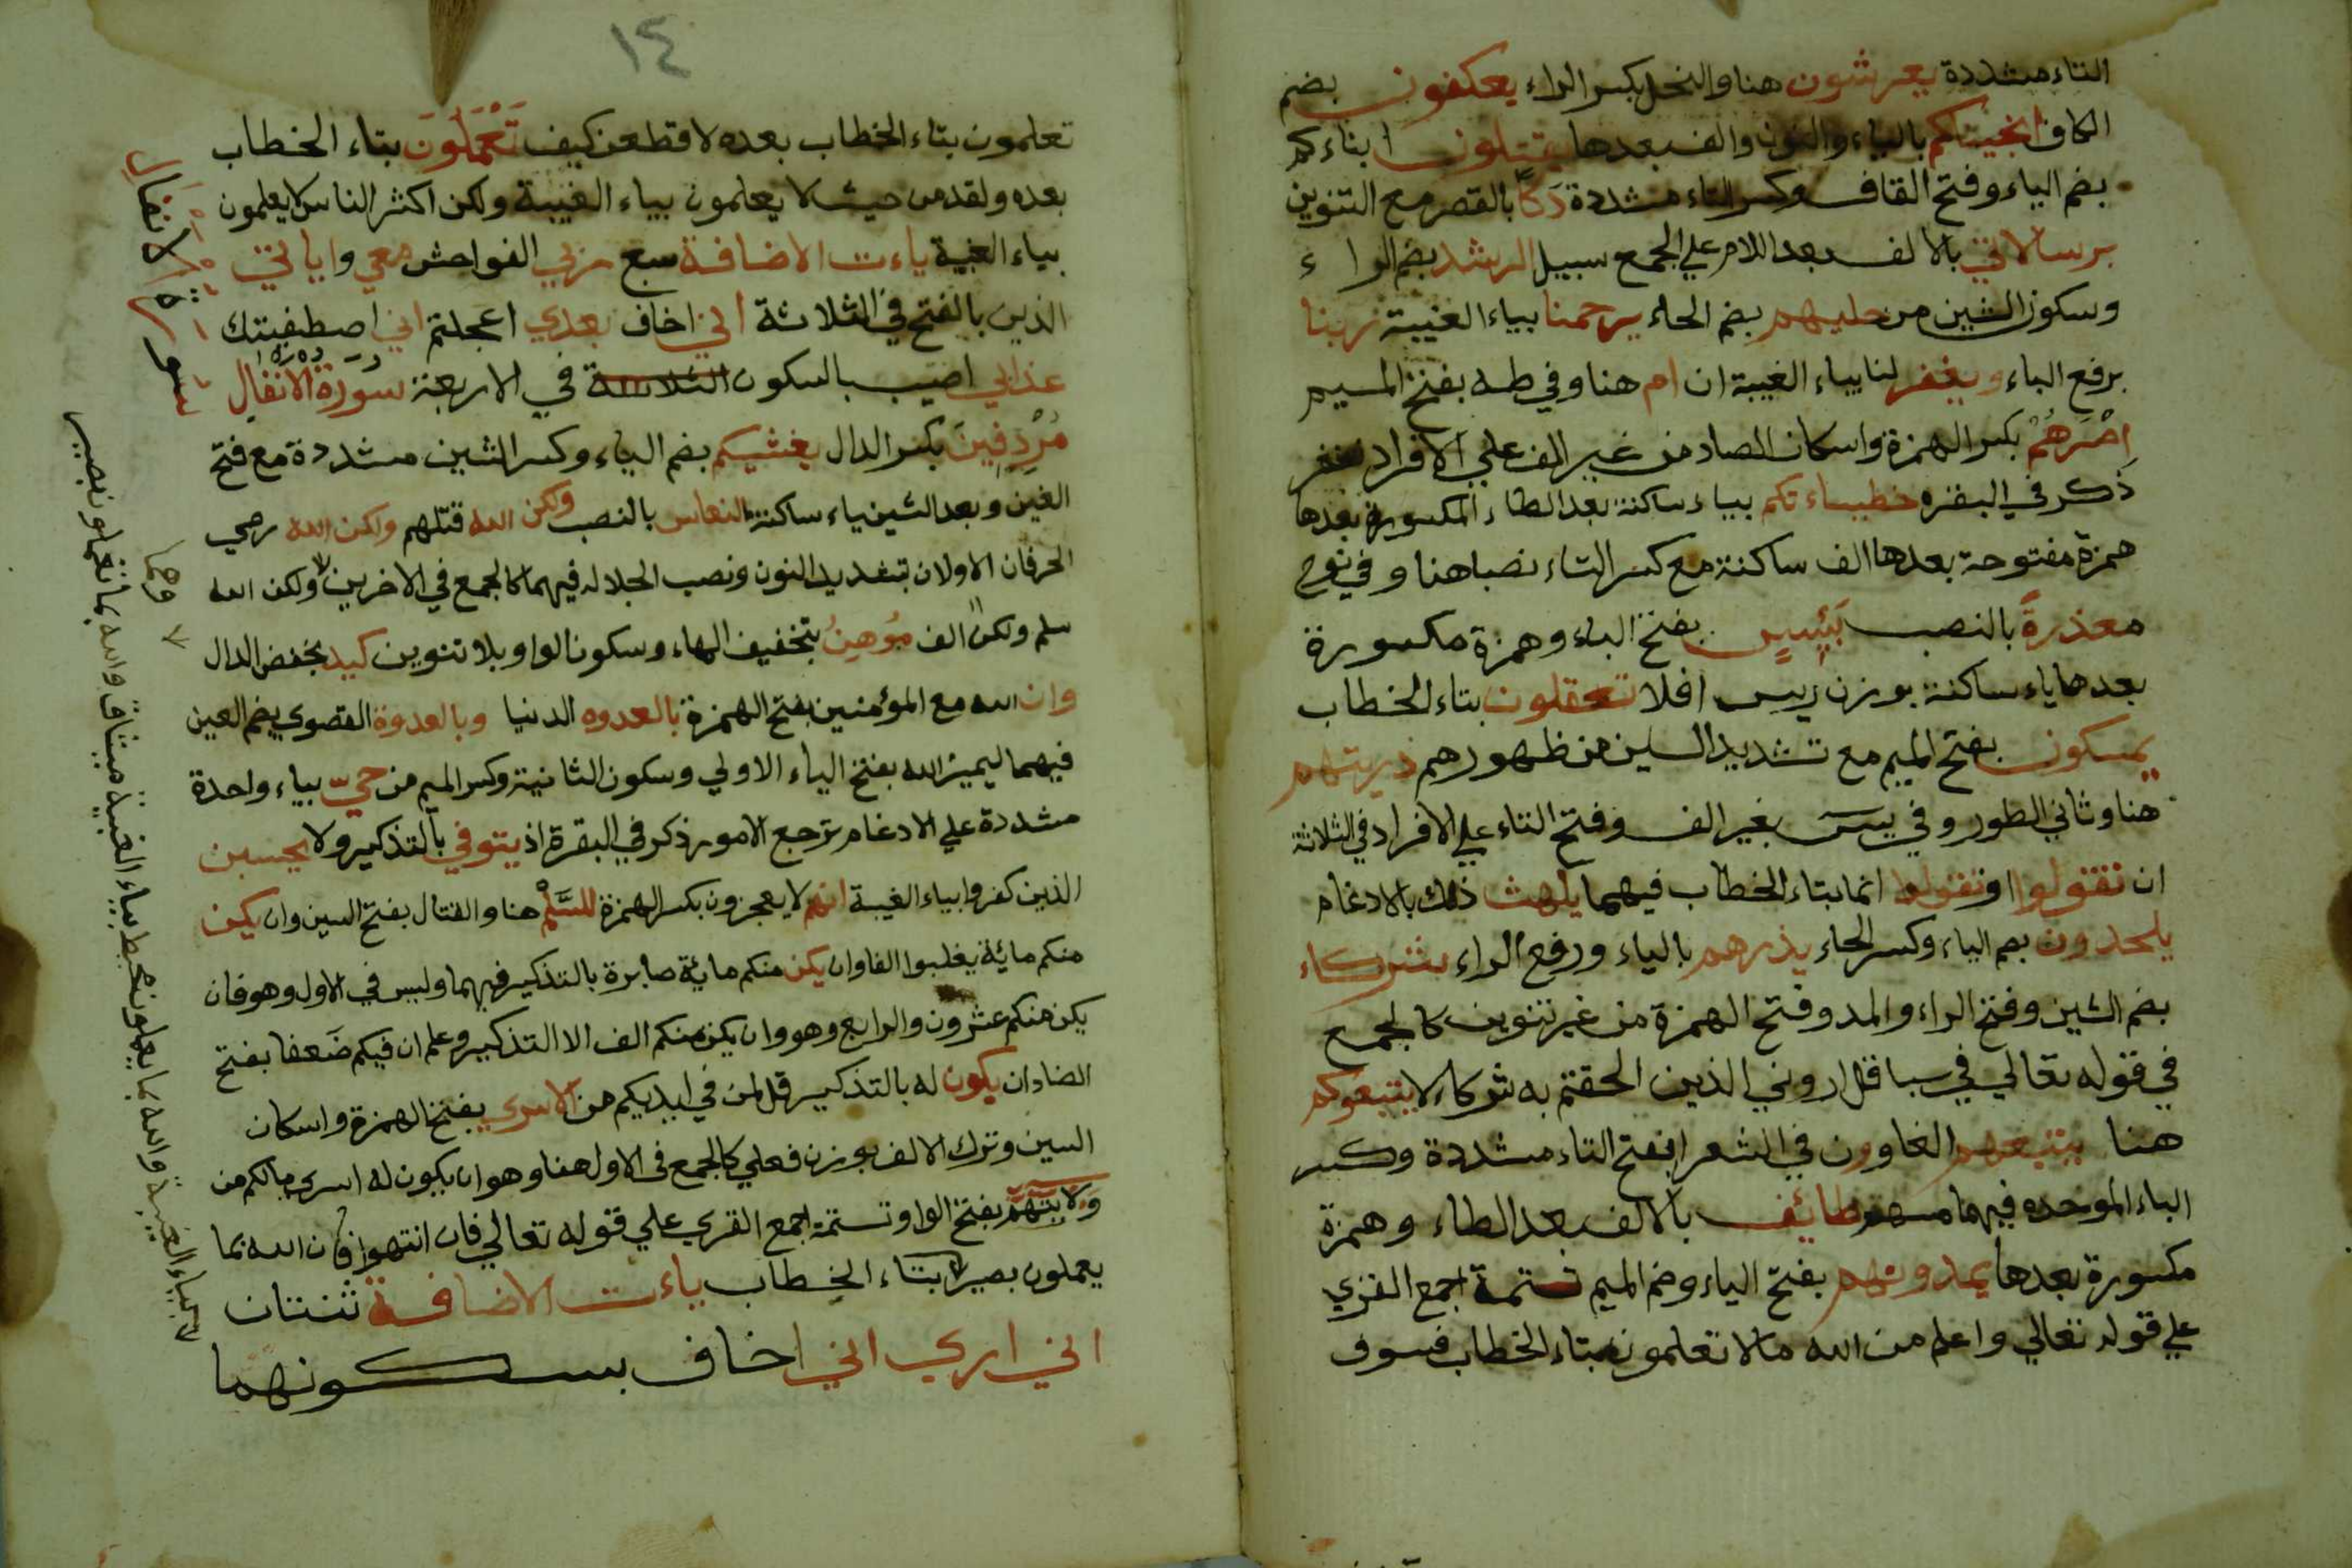 التاء مشددة يعرشون هنا والنحل بكسر الراء يعكفون بضم
الكاف انجيناكم بالياء والنون والف بعدها يقتلون ابناءكم
بضم الياء وفتح القاف وكسر التاء مشددة دَكًّا بالقصر مع التنوين
برسالاتي بالالف بعد اللام علي الجمع سبيل الرشد بضم الراء
وسكون الشين من حليهم بضم الحاء يرحمنا بياء الغيبة ربنا
برفع الباء ويغفر لنا بياء الغيبة ان ام هنا وفي طه بفتح الميم
اِصْرَهُمْ بكسر الهمزة واسكان الصاد من غير الف علي الافراد نغفر
ذَكر في البقره خطيئاتكم بياء ساكنة بعد الطاء المكسورة بعدها
همزة مفتوحة بعدها الف ساكنة مع كسر التاء نصبا هنا وفي نوح
معذرةً بالنصب بَئِيسٍ بفتح الباء وهمزة مكسورة
بعدها ياء ساكنة بوزن رييس افلا تعقلون بتاء الخطاب
يمسكون بفتح الميم مع تشديد السين من ظهورهم ذريتهم
هنا وثاني الطور وفي يس بغير الف وفتح التاء علي الافراد في الثلاثة
ان تقولوا او تقولوا انما بتاء الخطاب فيهما يلهث ذلك بالادغام
يلحدون بضم الياء وكسر الحاء يذرهم بالياء ورفع الراء شركاء
بضم الشين وفتح الراء والمد وفتح الهمزة من غير تنوين كالجمع
في قوله تعالي في سبا قل اروني الذين الحقتم به شركاء لا يتبعوكم
هنا يتبعهم الغاوون في الشعرا بفتح التاء مشددة وكسر
الباء الموحده فيهما مسهم طائف بالالف بعد الطاء وهمزة
مكسورة بعدها يمدونهم بفتح الياء وضم الميم تتمة اجمع القري
علي قوله تعالي واعلم من الله مالا تعلمون بتاء الخطاب فسوف
١٤
تعلمون بتاء الخطاب بعده لاقطعن كيف تَعْمَلُونَ بتاء الخطاب
بعده ولقد من حيث لا يعلمون بياء الغيبة ولكن اكثر الناس لا يعلمون
بياء الغيبة ياءت الاضافة سبع ربي الفواحش معي واياتي
الذين بالفتح في الثلاثة اني اخاف بعدي اعجلتم اني اصطفيتك
عذابي اصيب بالسكون الثلاثة في الاربعة سُورَةُ الْاَنْفَالِ
مُرْدِفِينَ بكسر الدال يغشيكم بضم الياء وكسر الشين مشددة مع فتح
الغين وبعد الشين ياء ساكنة النعاس بالنصب ولكن الله قتلهم ولكن الله رمي
الحرفان الاولان بتشديد النون ونصب الجلاله فيهما كالجمع في الاخرين ولكن الله
سلم ولكن الف مُوهِنُ بتخفيف الهاء وسكون الواو بلا تنوين كيد بخفض الدال
وان الله مع المؤمنين بفتح الهمزة بالعدوه الدنيا وبالعدوة القصوي بضم العين
فيهما ليميز الله بفتح الياء الاولي وسكون الثانية وكسر الميم من حيّ بياء واحدة
مشددة علي الادغام ترجع الامور ذكر في البقرة اذ يتوفي بالتذكير ولا يحسبن
الذين كفروا بياء الغيبة انهم لا يعجزون بكسر الهمزة للسَّلْمِ هنا والقتال بفتح السين وان يكن
منكم مائة يغلبوا الفا وان يكن منكم ماية صابرة بالتذكير فيهما وليس في الاول وهو فان
يكن منكم عشرون والرابع وهو وان يكن منكم الف الا التذكير وعلم ان فيكم ضَعفا بفتح
الضاد ان يكون له بالتذكير قل لمن في ايديكم من الاسري بفتح الهمزة واسكان
السين وترك الالف بوزن فعلي كالجمع في الاول هنا وهو ان يكون له اسري مالكم من
وَلايتهم بفتح الواو تتمة اجمع القري علي قوله تعالي فان انتهوا فان الله بما
يعملون بصير لا بتاء الخطاب ياءت الاضافة ثنتان
اني اري اني اخاف بسكونهما
سورة الانفال
وهما
بياء الغيبة والله بما يعملون محيط بياء الغيبة ميثاق والله بما تعملون بصير